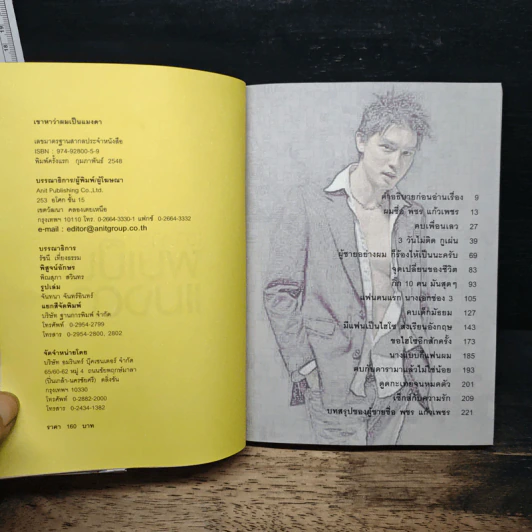 เขาหาว่าผมเป็นแมงดา
เลขมาตรฐานสากลประจำหนังสือ
ISBN : 974-92800-5-9
พิมพ์ครั้งแรก กุมภาพันธ์ 2548
บรรณาธิการ/ผู้พิมพ์/ผู้โฆษณา
Anit Publishing Co.,Ltd.
253 อโศก ชั้น 15
เขตวัฒนา คลองเตยเหนือ
กรุงเทพฯ 10110 โทร 0-2664-3330-1 แฟกซ์ 0-2664-3332
e-mail : editor@anitgroup.co.th
บรรณาธิการ
รัชนี เที่ยงธรรม
พิสูจน์อักษร
พิณสุภา สวินทร
รูปเล่ม
จันทนา จันทร์อินทร์
แยกสีจัดพิมพ์
บริษัท ฐานการพิมพ์ จำกัด
โทรศัพท์ 0-2954-2799
โทรสาร 0-2954-2800, 2802
จัดจำหน่ายโดย
บริษัท อมรินทร์ บุ๊คเซนเตอร์ จำกัด
65/60-62 หมู่ 4 ถนนชัยพฤกษ์มาลา
(ปิ่นเกล้า-นครชัยศรี) ตลิ่งชัน
กรุงเทพฯ 10330
โทรศัพท์ 0-2882-2000
โทรสาร 0-2434-1382
ราคา 160 บาท
คำอธิบายก่อนอ่านเรื่อง 9
ผมชื่อ พชร แก้วเพชร 13
คบเพื่อนเลว 27
3 วันไม่ติด กูเผ่น 39
ผู้ชายอย่างผม ก็ร้องไห้เป็นนะครับ 69
จุดเปลี่ยนของชีวิต 83
กิ๊ก 10 คน มันสุดๆ 93
แฟนคนแรก นางเอกช่อง 3 105
คบเด็กมัธยม 127
มีแฟนเป็นไฮโซ ส่งเรียนอังกฤษ 143
ขอไฮโซอีกสักครั้ง 173
นางแบบก็แฟนผม 185
คบกับดารามาแล้วไม่ใช่น้อย 193
ตุดกะเทยจนหมดตัว 201
เซ็กส์กับความรัก 209
บทสรุปของผู้ชายชื่อ พชร แก้วเพชร 221